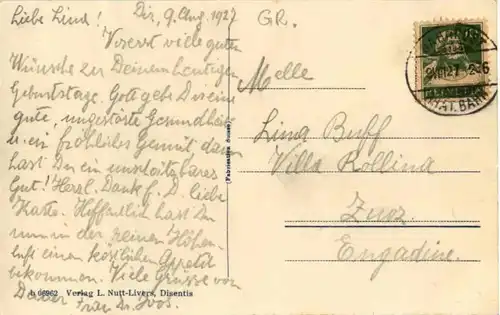 Diz, 9. Aug. 1927
Liebe Lina!
Vorerst viele guten
Wünsche zu Deinem heutigen
Geburtstage. Gott gebe Dir eine
gute, ungestörte Gesundheit
u. ein fröhliches Gemüt dann
hast Du ein unschätzbares
Gut! Herzl. Dank f. D. liebe
Karte. Hoffentlich hast Du
nun in der reinen Höhen-
luft einen köstlichen Appetit
bekommen. Viele Grüsse von
Deiner Frau Dr.
b 66962 Verlag L. Nutt-Livers, Disentis
(Fabrication Suisse)
Gr.
Melle
Lina Buff
Villa Rollina
Zuoz
Engadine.
HELVETIA